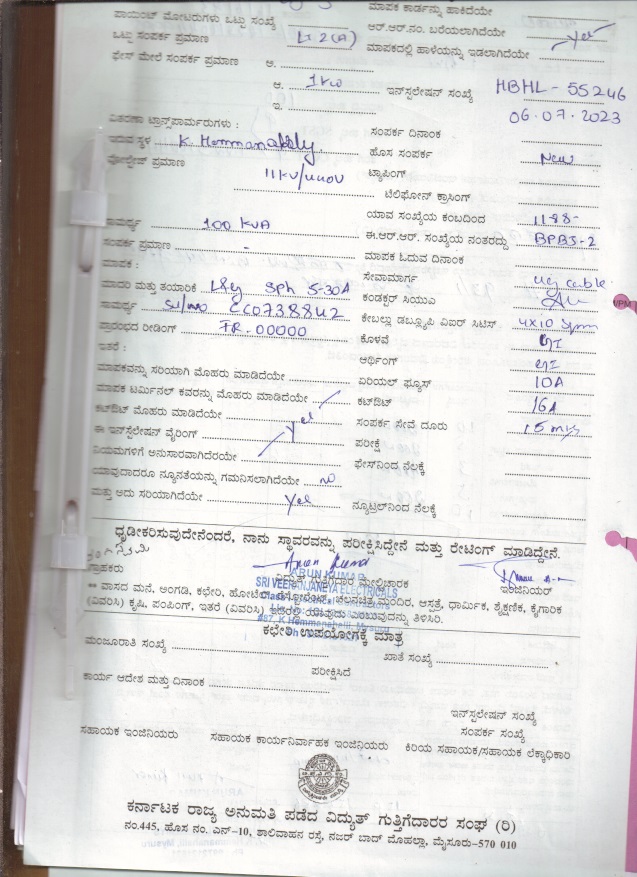 ಮಾಪಕ ಕಾರ್ಡನ್ನು ಹಾಕಿದೆಯೇ
ಪಾಯಿಂಟ್ ಮೋಟರುಗಳು ಒಟ್ಟು ಸಂಖ್ಯೆ
ಆರ್.ಆರ್.ನಂ. ಬರೆಯಲಾಗಿದೆಯೇ yes
ಒಟ್ಟು ಸಂಪರ್ಕ ಪ್ರಮಾಣ Lt.2(A) ಮಾಪಕದಲ್ಲಿ ಹಾಳೆಯನ್ನು ಇಡಲಾಗಿದೆಯೇ
ಫೇಸ್ ಮೇಲೆ ಸಂಪರ್ಕ ಪ್ರಮಾಣ ಅ.
ಆ. 1kw ಇನ್‌ಸ್ಟಲೇಷನ್ ಸಂಖ್ಯೆ HBHL-55246
ಇ. 06.07.2023
ವಿತರಣಾ ಟ್ರಾನ್ಸ್‌ಫಾರ್ಮರುಗಳು : ಸಂಪರ್ಕ ದಿನಾಂಕ
ಇರುವ ಸ್ಥಳ K. Hemmanahally ಹೊಸ ಸಂಪರ್ಕ New
ವೋಲ್ಟೇಜ್ ಪ್ರಮಾಣ 11kv/440v ಟ್ಯಾಪಿಂಗ್
ಟೆಲಿಫೋನ್ ಕ್ರಾಸಿಂಗ್
ಯಾವ ಸಂಖ್ಯೆಯ ಕಂಬದಿಂದ 1188-
ಸಾಮರ್ಥ್ಯ 100 KVA ಈ.ಆರ್.ಆರ್. ಸಂಖ್ಯೆಯ ನಂತರದ್ದು BPBJ-2
ಸಂಪರ್ಕ ಪ್ರಮಾಣ - ಮಾಪಕ ಓದುವ ದಿನಾಂಕ
ಮಾಪಕ : ಸೇವಾಮಾರ್ಗ ug cable
ಮಾದರಿ ಮತ್ತು ತಯಾರಿಕೆ L&g Sph 5-30A ಕಂಡಕ್ಟರ್ ಸಿಯುಎ
ಸಾಮರ್ಥ್ಯ Sl/no EC0738842 ಕೇಬಲ್ಲು ಡಬ್ಲ್ಯೂಪಿ ವಿಐರ್ ಸಿಟಿಸ್ 4x10 Sqmm
ಪ್ರಾರಂಭದ ರೀಡಿಂಗ್ FR-00000 ಕೊಳವೆ GI
ಇತರೆ : ಆರ್ಥಿಂಗ್ GI
ಮಾಪಕವನ್ನು ಸರಿಯಾಗಿ ಮೊಹರು ಮಾಡಿದೆಯೇ ಏರಿಯಲ್ ಫ್ಯೂಸ್ 10A
ಮಾಪಕ ಟರ್ಮಿನಲ್ ಕವರನ್ನು ಮೊಹರು ಮಾಡಿದೆಯೇ ಕಟ್‌ಔಟ್ 16A
ಕಟ್‌ಔಟ್ ಮೊಹರು ಮಾಡಿದೆಯೇ yes ಸಂಪರ್ಕ ಸೇವೆ ದೂರು 15 mts
ಈ ಇನ್‌ಸ್ಟಲೇಷನ್ ವೈರಿಂಗ್ ಪರೀಕ್ಷೆ
ನಿಯಮಗಳಿಗೆ ಅನುಸಾರವಾಗಿದೆರಯೇ ಫೇಸ್‌ನಿಂದ ನೆಲಕ್ಕೆ
ಯಾವುದಾದರೂ ನ್ಯೂನತೆಯನ್ನು ಗಮನಿಸಲಾಗಿದೆಯೇ no
ಮತ್ತು ಅದು ಸರಿಯಾಗಿದೆಯೇ yes ನ್ಯೂಟ್ರಲ್‌ನಿಂದ ನೆಲಕ್ಕೆ
ಧೃಡೀಕರಿಸುವುದೇನೆಂದರೆ, ನಾನು ಸ್ಥಾವರವನ್ನು ಪರೀಕ್ಷಿಸಿದ್ದೇನೆ ಮತ್ತು ರೇಟಿಂಗ್ ಮಾಡಿದ್ದೇನೆ.
Arun Kumar
ಗ್ರಾಹಕರು ಮೇಲಿಚಾರಕ ಇಂಜಿನಿಯರ್
ARUN KUMAR
SRI VEERANJANEYA ELECTRICALS
** ವಾಸದ ಮನೆ, ಅಂಗಡಿ, ಕಛೇರಿ, ಹೋಟೆಲ್, ಚಲನಚಿತ್ರ ಮಂದಿರ, ಆಸ್ಪತ್ರೆ, ಧಾರ್ಮಿಕ, ಶೈಕ್ಷಣಿಕ, ಕೈಗಾರಿಕ
(ವಿವರಿಸಿ) ಕೃಷಿ, ಪಂಪಿಂಗ್, ಇತರೆ (ವಿವರಿಸಿ) ಇದರಲ್ಲಿ ಯಾವುದು ಎಂಬುವುದನ್ನು ತಿಳಿಸಿರಿ.
ಕಛೇರಿ ಉಪಯೋಗಕ್ಕೆ ಮಾತ್ರ
ಮಂಜೂರಾತಿ ಸಂಖ್ಯೆ ಖಾತೆ ಸಂಖ್ಯೆ
ಪರೀಕ್ಷಿಸಿದೆ
ಕಾರ್ಯ ಆದೇಶ ಮತ್ತು ದಿನಾಂಕ
ಇನ್‌ಸ್ಟಲೇಷನ್ ಸಂಖ್ಯೆ
ಸಂಪರ್ಕ ಸಂಖ್ಯೆ
ಸಹಾಯಕ ಇಂಜಿನಿಯರು ಸಹಾಯಕ ಕಾರ್ಯನಿರ್ವಾಹಕ ಇಂಜಿನಿಯರು ಕಿರಿಯ ಸಹಾಯಕ/ಸಹಾಯಕ ಲೆಕ್ಕಾಧಿಕಾರಿ
ಕರ್ನಾಟಕ ರಾಜ್ಯ ಅನುಮತಿ ಪಡೆದ ವಿದ್ಯುತ್ ಗುತ್ತಿಗೆದಾರರ ಸಂಘ (ರಿ)
ನಂ.445, ಹೊಸ ನಂ. ಎನ್-10, ಶಾಲಿವಾಹನ ರಸ್ತೆ, ನಜರ್ ಬಾದ್ ಮೊಹಲ್ಲಾ, ಮೈಸೂರು-570 010